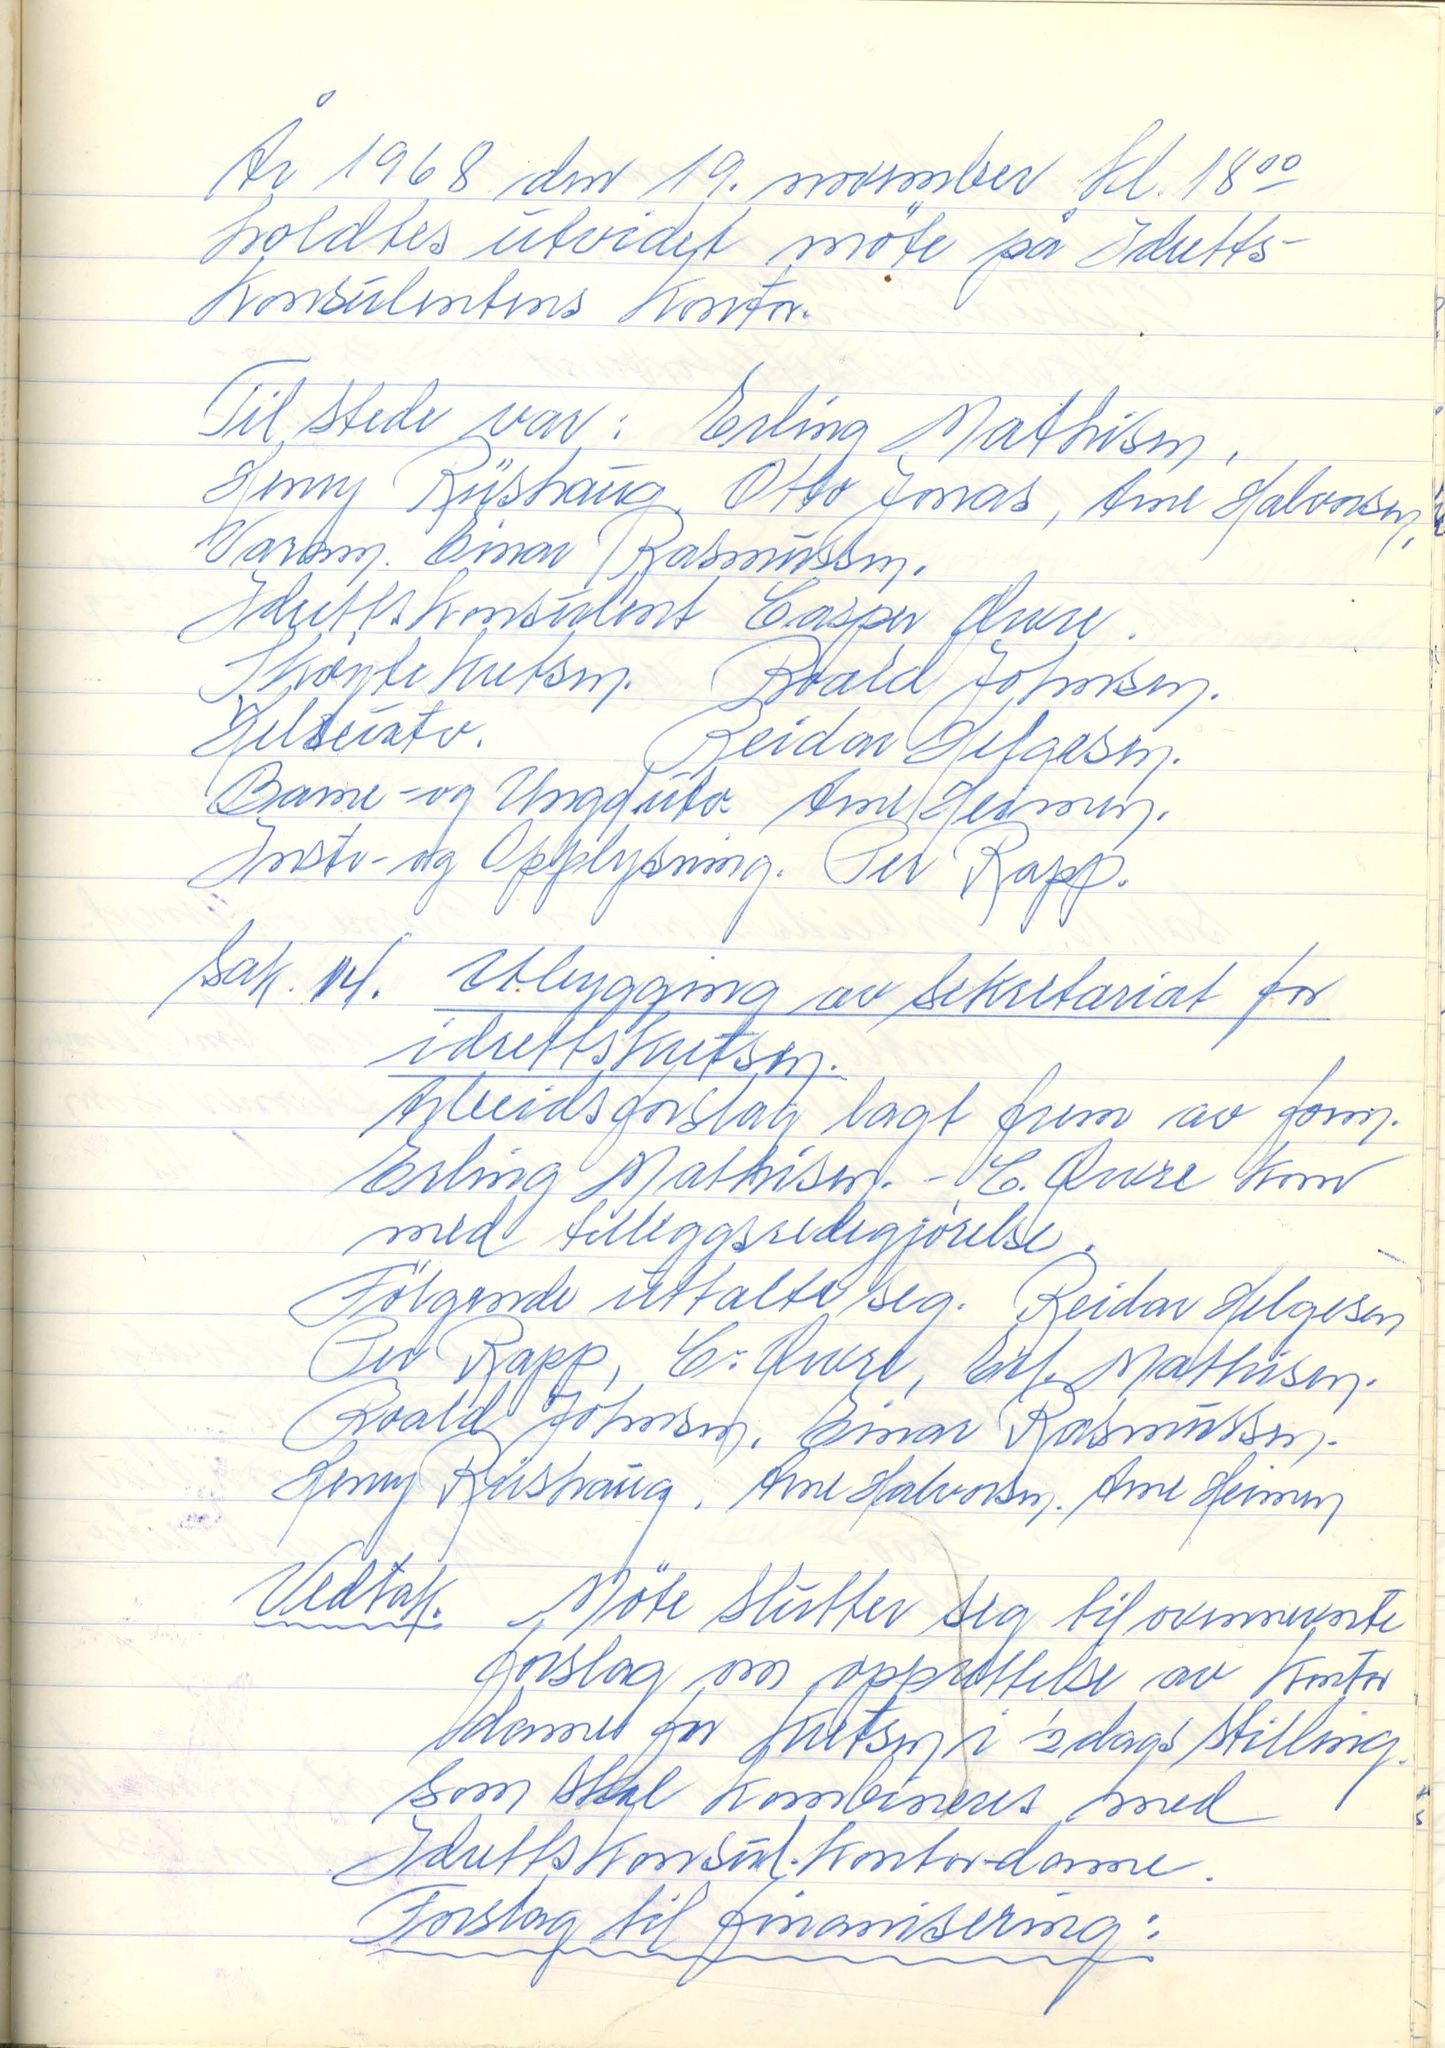 År 1968 den 19. november kl. 18⁰⁰
holdtes utvidet möte på Idretts-
Konsulentens Kontor.
Til stede var: Erling Mathisen,
Henry Riishaug, Otto Jonas, Arne Halvorsen,
Varam. Einar Rasmussen.
Idrettskonsulent Casper Qvare.
Skøytekretsen. Roald Johnsen.
Reidar Helgesen.
Barne- og Ungd.utv. Arne Heimen.
Instr- og Opplysning. Per Rapp.
Sak. 14. Utbygging av sekretariat for
idrettskretsen.
Arbeidsforslag lagt frem av form.
Erling Mathisen. - C. Qvare kom
med tilleggsredegjörelse.
Fölgende uttalte seg. Reidar Helgesen
Per Rapp, C. Qvare, Erl. Mathisen.
Roald Johnsen, Einar Rasmussen.
Henry Riishaug, Arne Halvorsen. Arne Heimen
Vedtak. Möte slutter seg til ovennevnte
forslag om opprettelse av Kontor
dame for Kretsen i ½dags stilling.
som skal kombineres med
Idrettskonsul. Kontor-dame.
Forslag til finanisering: